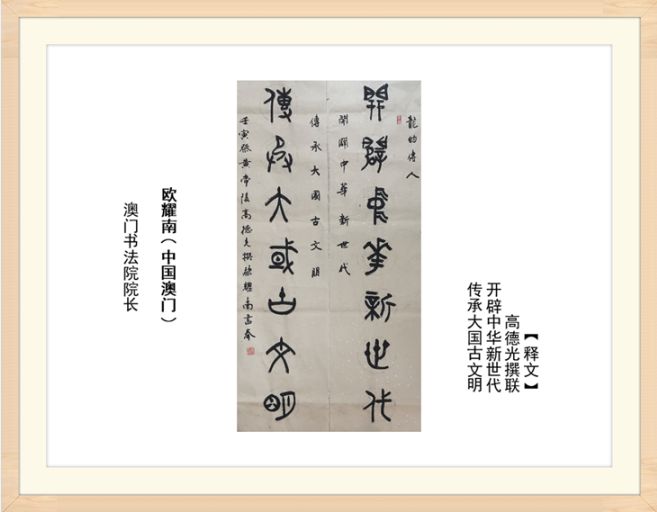 【释文】
高德光撰联
开辟中华新世代
传承大国古文明
龍的傳人
開闢中華新世代
開闢中華新世代
傳承大國古文明
傳承大或古文明
壬寅祭黄帝陵高德光撰歐耀南書奉
欧耀南（中国澳门）
澳门书法院院长